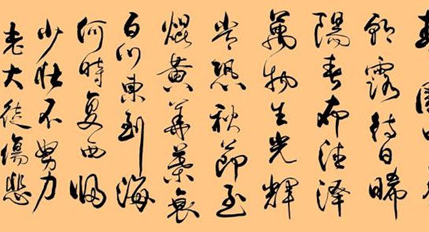 園
朝露待日晞
陽春布德澤
萬物生光輝
常恐秋節至
焜黃華葉衰
百川東到海
何時复西歸
少壯不努力
老大徒傷悲